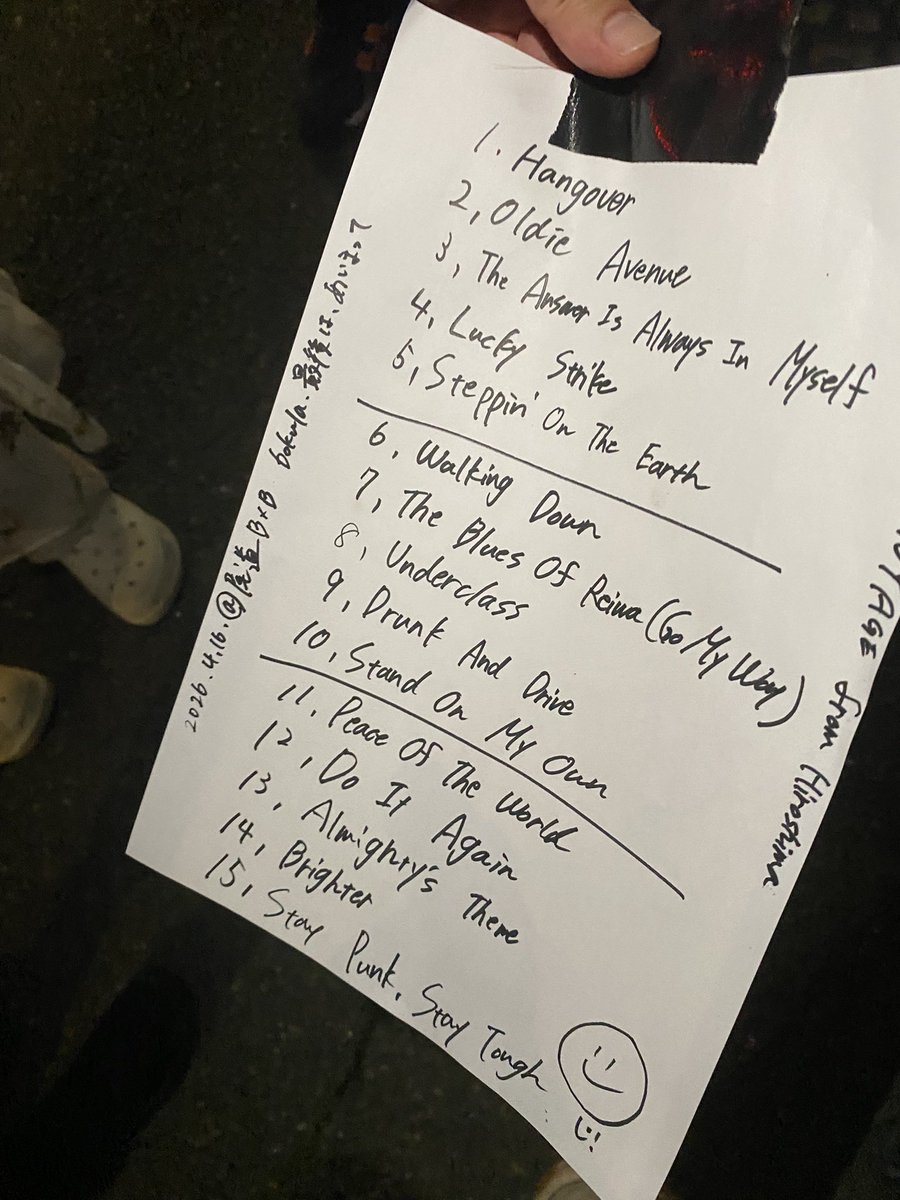 1. Hangover
2, Oldie Avenue
3, The Answer Is Always In Myself
4, Lucky Strike
5, Steppin' On The Earth
6, Walking Down
7, The Blues Of Reiwa (Go My Way)
8, Underclass
9, Drunk And Drive
10, Stand On My Own
11. Peace Of The World
12, Do It Again
13, Almighty's Theme
14, Brighter
15, Stay Punk, Stay Tough
2026.4.16.@尾道B×B bokula.最後は、あいまって
from Hiroshima